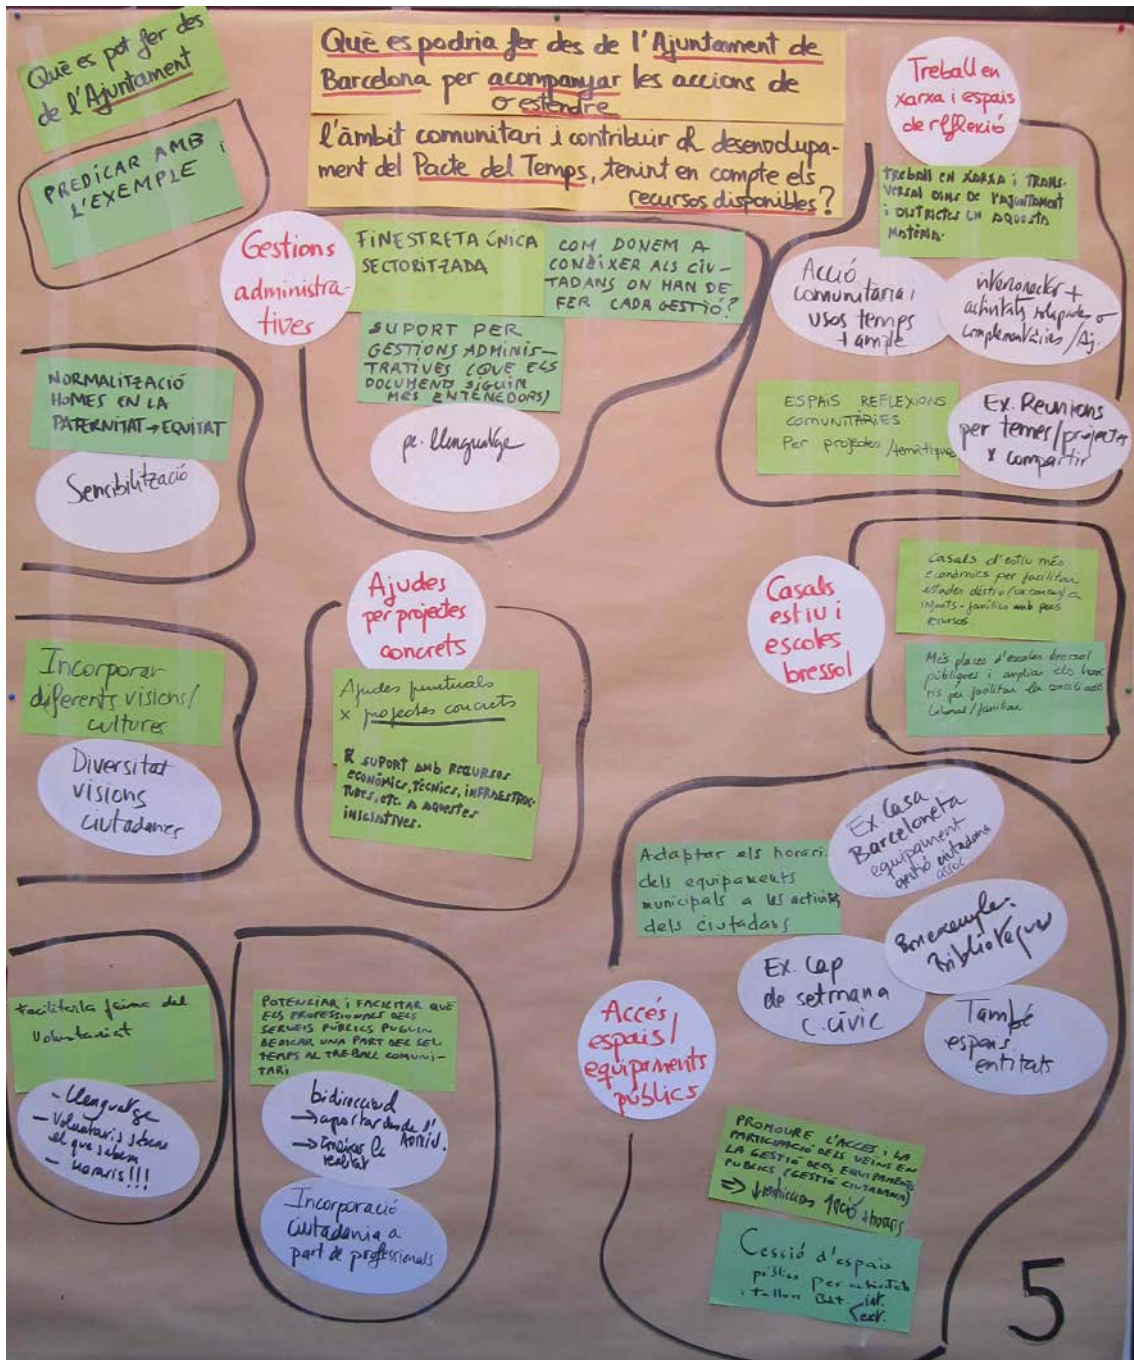 Què es pot fer des
de l'Ajuntament
PREDICAR AMB
L'EXEMPLE
Què es podria fer des de l'Ajuntament de
Barcelona per acompanyar les accions de
o estendre
l'àmbit comunitari i contribuir al desenvolupa-
ment del Pacte del Temps, tenint en compte els
recursos disponibles?
Treball en
xarxa i espais
de reflexió
TREBALL EN XARXA i TRANS-
VERSAL DINS DE L'AJUNTAMENT
i DISTRICTES EN AQUESTA
MATÈRIA.
Acció
comunitària i
usos temps
+ ample
interconectar +
activitats o
complementàries / Aj.
ESPAIS REFLEXIONS
COMUNITÀRIES
Per projectes / temàtiques
Ex. Reunions
per temes/projectes
x compartir
Gestions
administra-
tives
FINESTRETA ÚNICA
SECTORITZADA
COM DONEM A
CONÈIXER ALS CIU-
TADANS ON HAN DE
FER CADA GESTIÓ?
SUPORT PER
GESTIONS ADMINIS-
TRATIVES (QUE ELS
DOCUMENTS SIGUIN
MÉS ENTENEDORS)
pe. llenguatge
NORMALITZACIÓ
HOMES EN LA
PATERNITAT → EQUITAT
Sensibilització
Ajudes
per projectes
concrets
Ajudes puntuals
x projectes concrets
SUPORT AMB RECURSOS
ECONÒMICS, TÈCNICS, INFRAESTRUC-
TURES, ETC. A AQUESTES
INICIATIVES.
Casals
estiu i
escoles
bressol
Casals d'estiu més
econòmics per facilitar
estades d'estiu a
infants-famílies amb pocs
recursos
Més places d'escoles bressol
públiques i ampliar els hora
ris per facilitar la conciliació
laboral/familiar
Incorporar
diferents visions/
cultures
Diversitat
visions
ciutadanes
Adaptar els horari.
dels equipaments
municipals a les activitats
dels ciutadans
Ex Casa
Barceloneta
equipament
gestió ciutadana
assoc.
Biblioteques
Ex. Cap
de setmana
C. Cívic
També
espais
entitats
Accés
espais/
equipaments
públics
PROMOURE L'ACCÉS i LA
PARTICIPACIÓ DELS VEÏNS EN
LA GESTIÓ DELS EQUIPAMENTS
PÚBLICS (GESTIÓ CIUTADANA)
⇒ + horaris
Cessió d'espais
públics per activitats
i tallers int.
ext.
Facilitar la feina del
Voluntariat
- Llenguatge
- Voluntaris saben
el que saben
- Horaris!!!
POTENCIAR i FACILITAR QUE
ELS PROFESSIONALS DELS
SERVEIS PÚBLICS PUGUIN
DEDICAR UNA PART DEL SEU
TEMPS AL TREBALL COMUNI-
TARI
bidireccional
→ aportar des de l'
→ conèixer la
realitat
Incorporació
ciutadania a
part de professionals
5